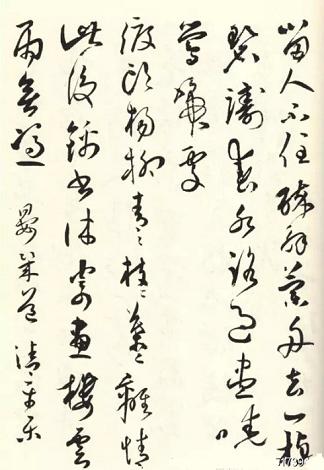 留人不住醉解蘭舟去一棹
碧濤春水路過盡曉
鶯啼處
渡頭楊柳青〻枝〻葉〻離情
此後錦書休寄畫樓雲
雨無憑 晏幾道 清平樂